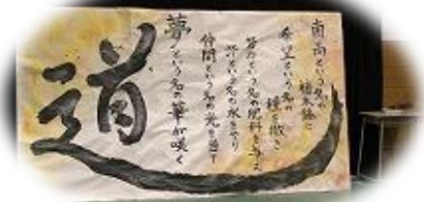 南高という名の
植木鉢に
希望という名の
種を撒き
という名の肥料を与え
という名の水をやり
仲間という名の光を
夢という名の華が咲く
道